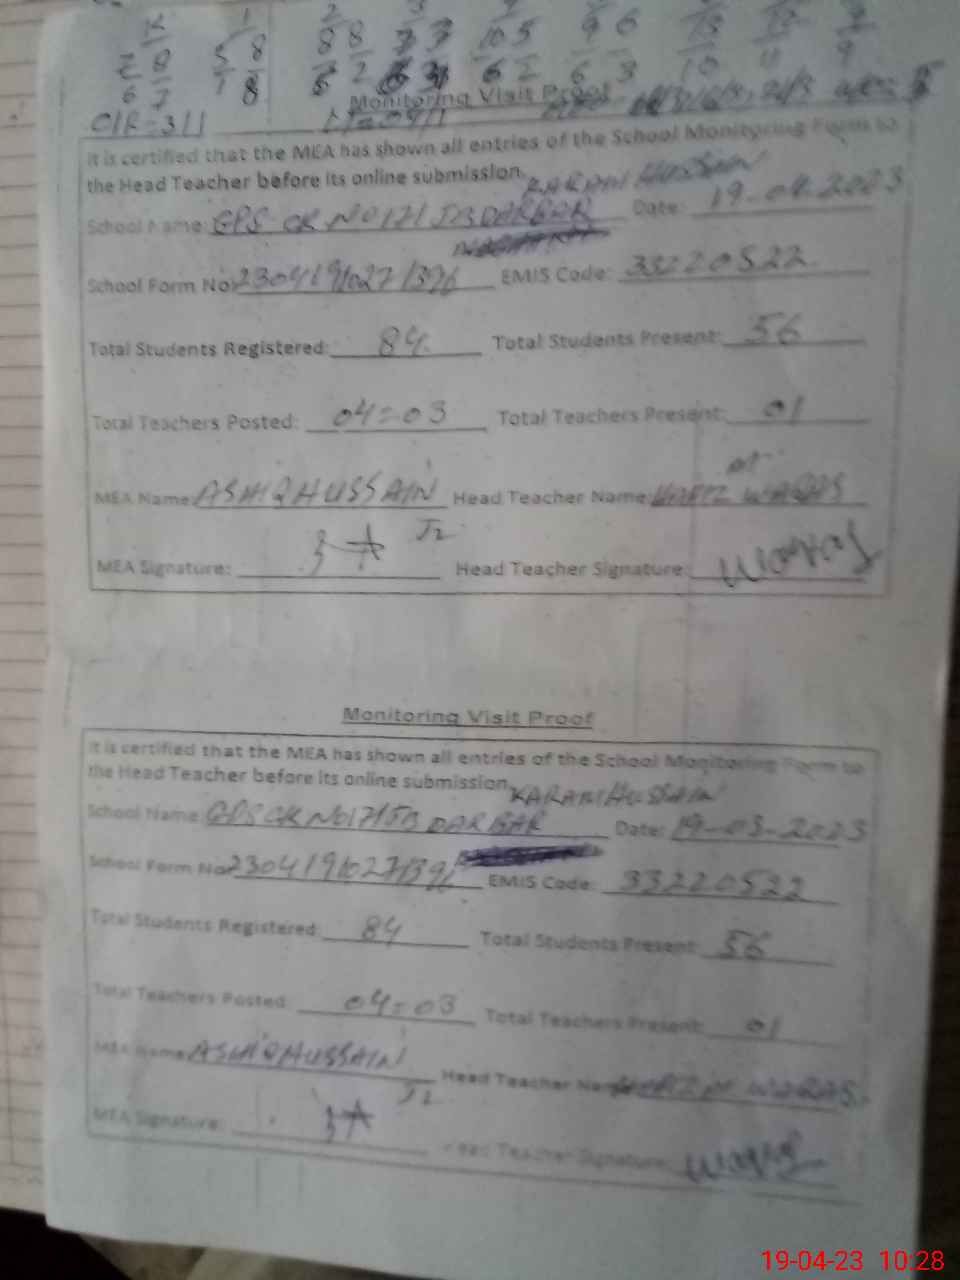 Monitoring Visit Proof
CIR-311
It is certified that the MEA has shown all entries of the School Monitoring Form to
the Head Teacher before its online submission.
KARAM HUSSAIN
School Name: GPS CK NO 171 JB DARBAR Date: 19-04-2023
School Form No: 2304191027/396 EMIS Code: 33220522
Total Students Registered: 84 Total Students Present: 56
Total Teachers Posted: 04=03 Total Teachers Present: 01
MEA Name: ASHIQ HUSSAIN Head Teacher Name: HAFIZ M WAQAS
MEA Signature: Head Teacher Signature: Waqas
Monitoring Visit Proof
It is certified that the MEA has shown all entries of the School Monitoring Form to
the Head Teacher before its online submission.
KARAM HUSSAIN
School Name: GPS CK NO 171 JB DARBAR Date: 19-03-2023
School Form No: 2304191027/396 EMIS Code: 33220522
Total Students Registered: 84 Total Students Present: 56
Total Teachers Posted: 04=03 Total Teachers Present: 01
MEA Name: ASHIQ HUSSAIN Head Teacher Name: HAFIZ M WAQAS
MEA Signature: Head Teacher Signature: Waqas
19-04-23 10:28